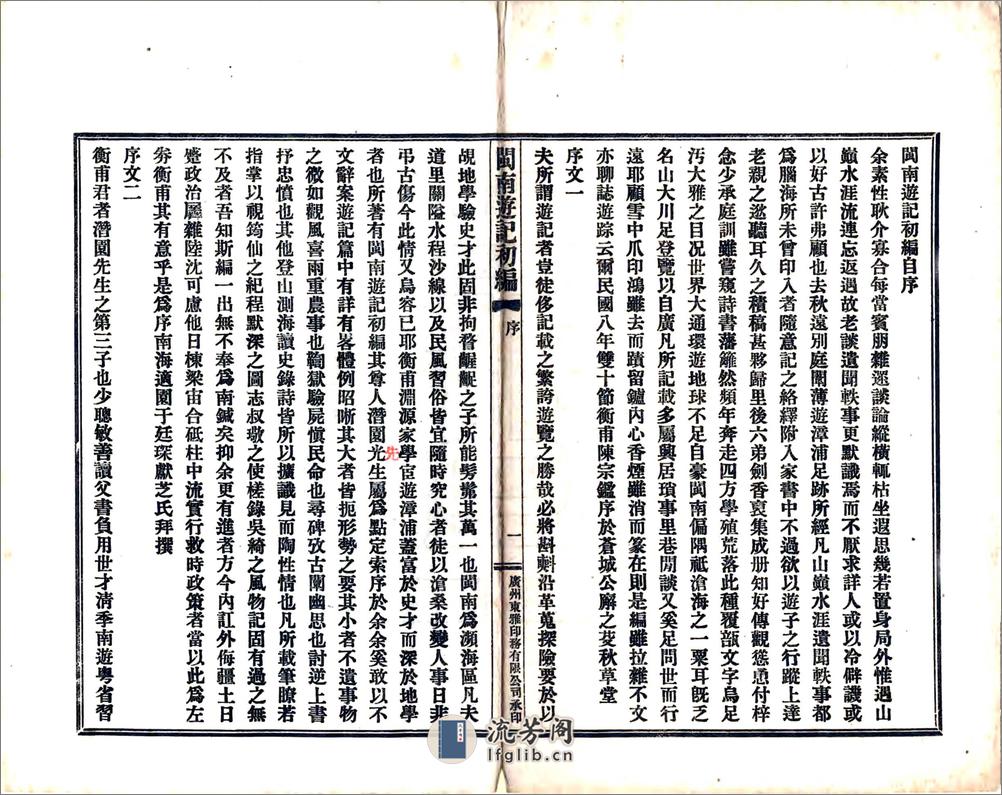 閩南遊記初編自序
余素性耿介寡合每當賓朋雜遝談論縱橫輒枯坐遐思幾若置身局外惟遇山
巔水涯流連忘返遇故老談遺聞軼事更默識焉而不厭求詳人或以冷僻譏或
以好古許弗顧也去秋遠別庭闈薄遊漳浦足跡所經凡山巔水涯遺聞軼事都
爲腦海所未曾印入者隨意記之絡繹附入家書中不過欲以遊子之行蹤上達
老親之遙聽耳久之積稿甚夥歸里後六弟劍香裒集成册知好傳觀慫恿付梓
念少承庭訓雖嘗窺詩書藩籬然頻年奔走四方學殖荒落此種覆瓿文字烏足
汚大雅之目况世界大通環遊地球不足自豪閩南偏隅祗滄海之一粟耳旣乏
名山大川足登覽以自廣凡所記載多屬興居瑣事里巷閒談又奚足問世而行
遠耶顧雪中爪印鴻雖去而蹟留鑪內心香煙雖消而篆在則是編雖拉雜不文
亦聊誌遊踪云爾民國八年雙十節衡甫陳宗鑑序於蒼城公廨之芰秋草堂
序文一
夫所謂遊記者豈徒侈記載之繁誇遊覽之勝哉必將斟酌沿革蒐探險要於以
閩南遊記初編
序
一
廣州東雅印務有限公司承印
覘地學驗史才此固非拘瞀齷齪之子所能髣髴其萬一也閩南爲瀕海區凡夫
道里關隘水程沙線以及民風習俗皆宜隨時究心者徒以滄桑改變人事日非
弔古傷今此情又烏容已耶衡甫淵源家學宦遊漳浦蓋富於史才而深於地學
者也所著有閩南遊記初編其尊人潛園光生屬爲點定索序於余余奚敢以不
先
文辭案遊記篇中有詳有畧體例昭晰其大者皆扼形勢之要其小者不遺事物
之微如觀風喜雨重農事也鞫獄驗屍愼民命也尋碑攷古闡幽思也討逆上書
抒忠憤也其他登山測海讀史錄詩皆所以擴識見而陶性情也凡所載筆瞭若
指掌以視筠仙之紀程默深之圖志叔敬之使槎錄吳綺之風物記固有過之無
不及者吾知斯編一出無不奉爲南鍼矣抑余更有進者方今內訌外侮疆土日
蹙政治厖雜陸沈可慮他日棟梁宙合砥柱中流實行救時政策者當以此爲左
券衡甫其有意乎是爲序南海適園于廷琛獻芝氏拜撰
序文二
衡甫君者潛園先生之第三子也少聰敏善讀父書負用世才淸季南遊粵省習
流芳阁
lfglib.cn